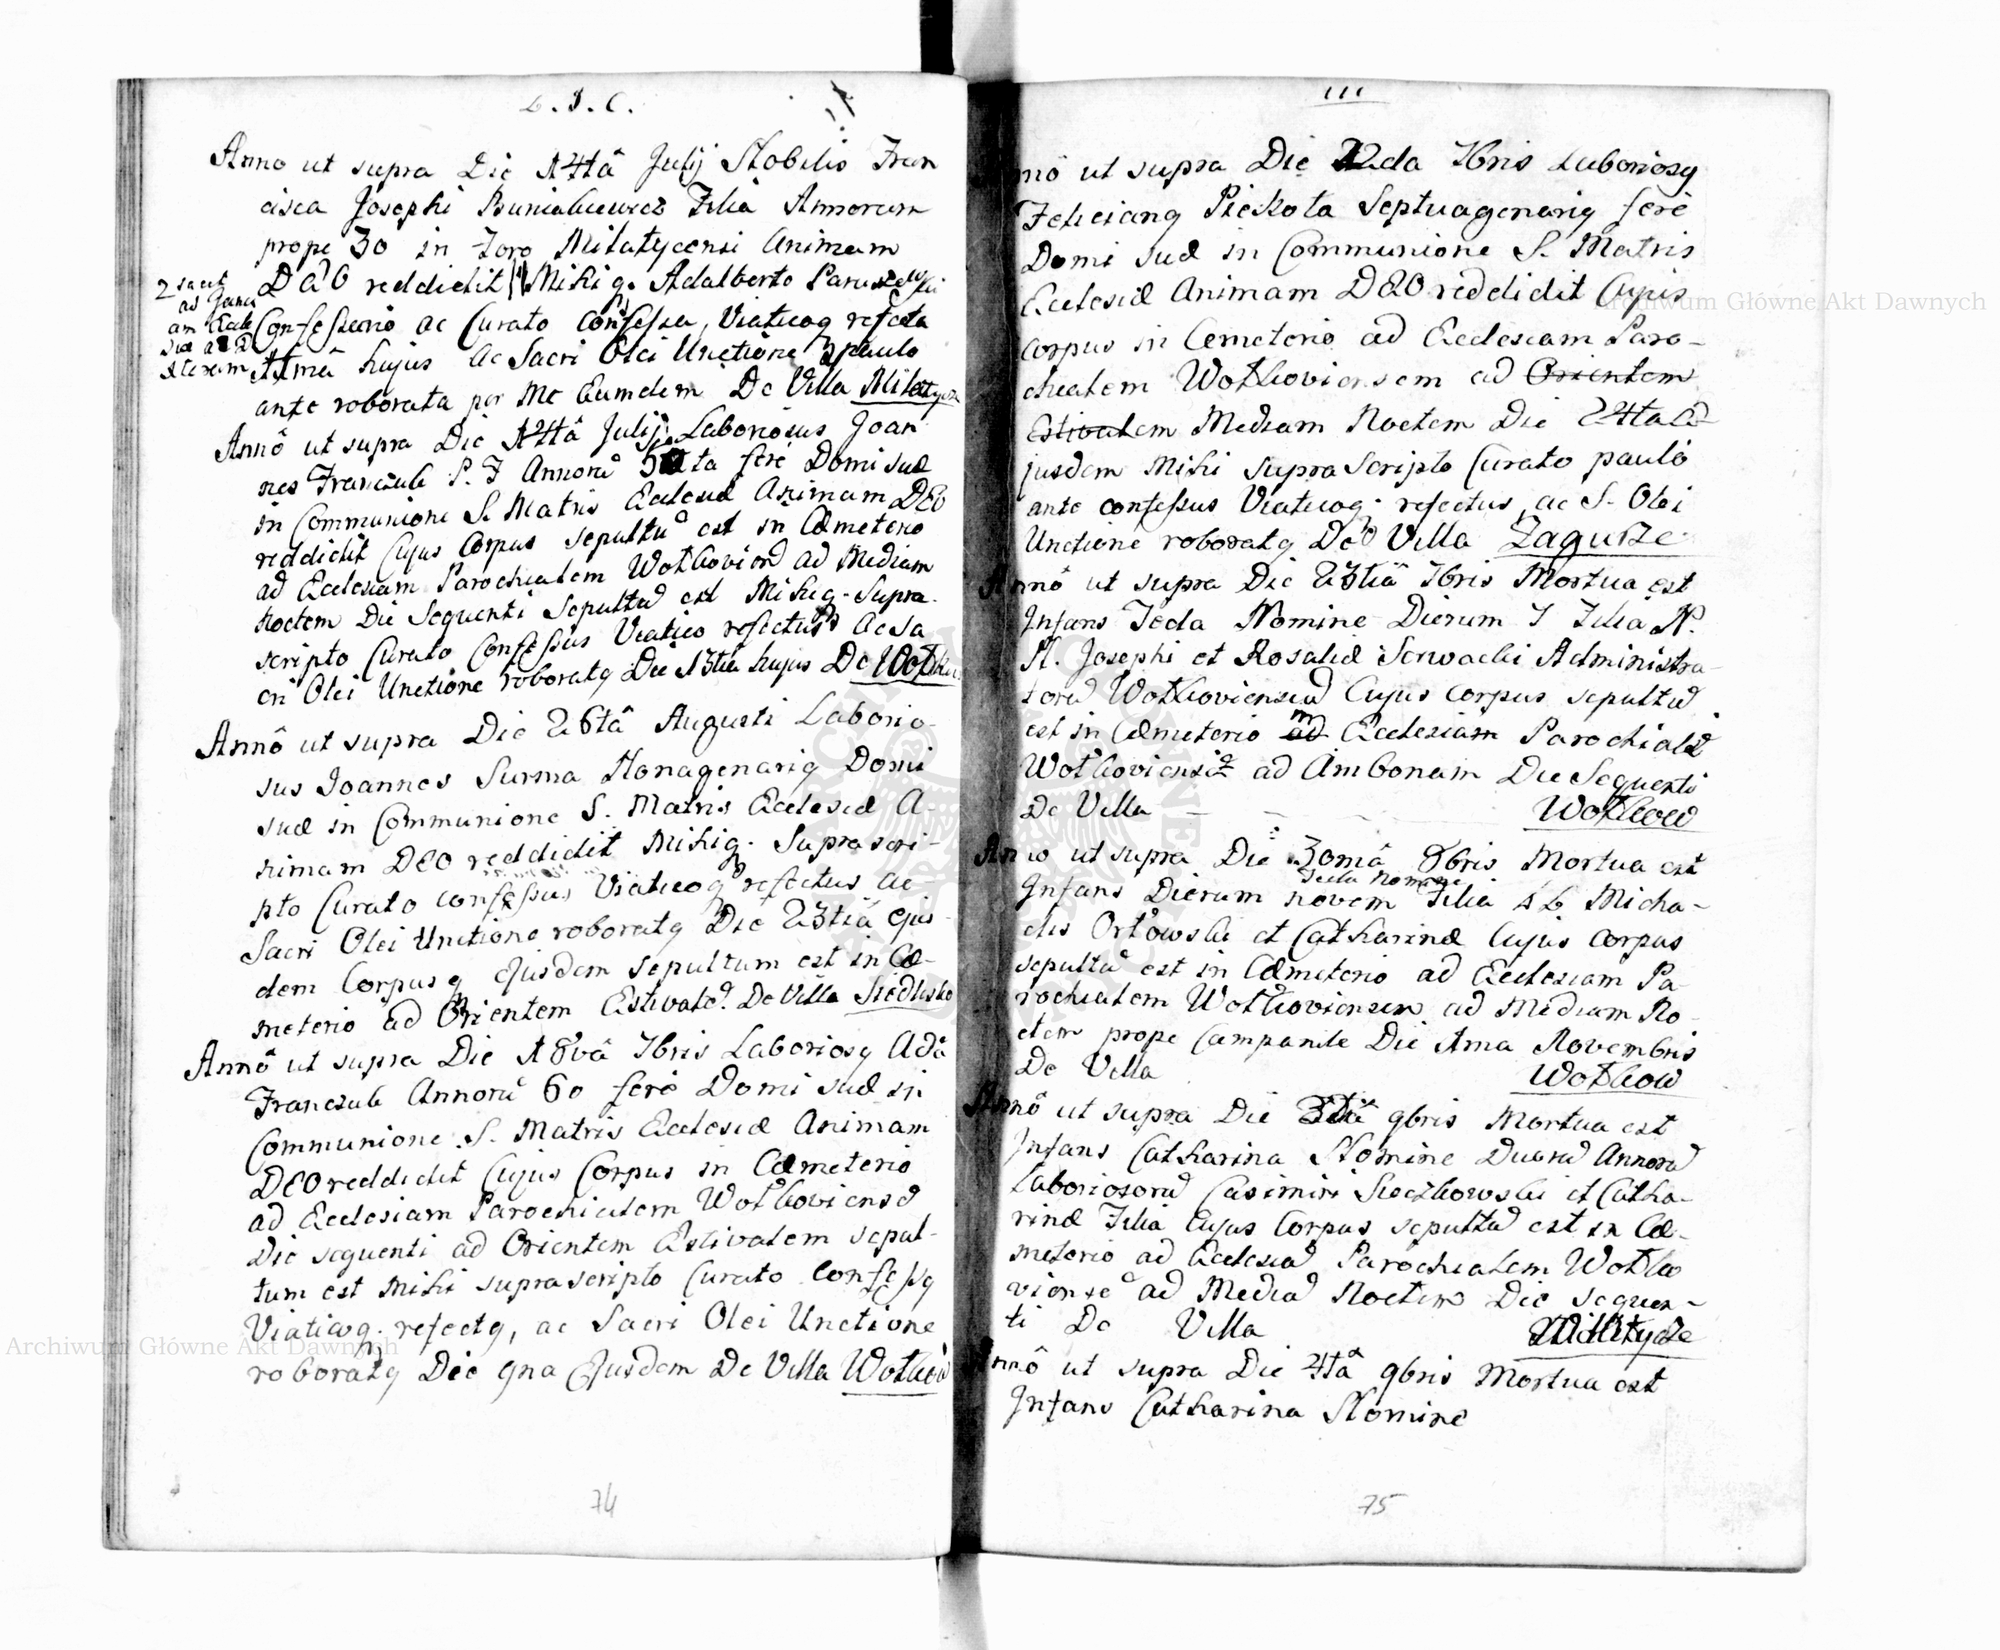 L. J. C.
Anno ut supra Die 14tâ Julij Nobilis Fran
cisca Josephi Buniakiewicz Filia Annorum
prope 30 in Foro Milatycensi Animam
DEO reddidit Mihiq. Adalberto
Confessario ac Curato confessa, Viaticoq refecta
hujus ac Sacri Olei Unctione paulo
ante roborata per Me Eumdem De Villa Milatycze
Annô ut supra Die 14tâ Julij Laboriosus Joan
nes Franczuk S. F Annorū ta fere Domi suæ
in Communione S. Matris Ecclesiæ Animam DEO
reddidit Cujus Corpus sepultū est in Cœmeterio
ad Ecclesiam Parochialem Wotkovien ad Mediam
Noctem Die Sequenti Sepultū est Mihiq. Supra
scripto Curato Confessus Viatico refectus ac Sa
cri Olei Unctione roboratq Die 13tia hujus De
Annô ut supra Die 26tâ Augusti Laborio
sus Joannes Surma Nonagenariq Domi
suæ in Communione S. Matris Ecclesiæ A-
nimam DEO reddidit Mihiq. Suprascri-
pto Curato confessus Viaticoq refectus ac
Sacri Olei Unctione roboratq Die 23tiâ ejus
dem Corpusq ejusdem sepultum est in Cœ-
meterio ad Orientem Estivalē. De Villa Siedlisko
Annô ut supra Die 18vâ 7bris Laboriosq Adā
Franczuk Annorū 60 fere Domi suæ in
Communione S. Matris Ecclesiæ Animam
DEO reddidit Cujus Corpus in Cœmeterio
ad Ecclesiam Parochialem Wotkoviensē
Die sequenti ad Orientem Estivalem sepul-
tum est Mihi supra scripto Curato Confessq
Viaticoq. refectq, ac Sacri Olei Unctione
roboratq Die 9na Ejusdem De Villa Wotkow
74
111
Annô ut supra Die 22da 7bris Laboriosq
Felicianq Piekota Septuagenariq fere
Domi suæ in Communione S. Matris
Ecclesiæ Animam DEO reddidit Cujus
Corpus in Cemeterio ad Ecclesiam Paro-
chialem Wotkoviensem ad Orientem
Estivalem Mediam Noctem Die 24ta e
jusdem Mihi supra Scripto Curato paulo
ante confessus Viaticoq. refectus, ac S. Olei
Unctione roboratq De Villa Zagurze
Annô ut supra Die 23tiâ 7bris Mortua est
Infans Tecla Nomine Dierum 7 Filia N.
N. Josephi et Rosaliæ Serwacki Administra-
torū Wotkoviensiū Cujus Corpus sepultū
est in Cœmeterio ad Ecclesiam Parochialē
ad Ambonam Die Sequenti
De Villa Wotkow
Anno ut supra Die 30mâ 8bris Mortua est
Tecla Nomine
Infans Dierum novem Filia Micha-
elis Orłowski et Catharinæ Cujus Corpus
sepultū est in Cœmeterio ad Ecclesiam Pa-
rochialem Wotkoviensem ad Mediam No-
ctem prope Campanile Die 1ma Novembris
De Villa Wotkow
Annô ut supra Die 9bris Mortua est
Infans Catharina Nomine Duorū Annorū
Laboriosorū Casimiri Sieczkowski et Catha-
rinæ Filia Cujus Corpus sepultū est in Cœ-
meterio ad Ecclesiā Parochialem Wotko
viensē ad Mediā Noctem Die sequen-
ti De Villa Milatycze
Annô ut supra Die 4tâ 9bris Mortua est
Infans Catharina Nomine
75
Archiwum Główne Akt Dawnych
Archiwum Główne Akt Dawnych